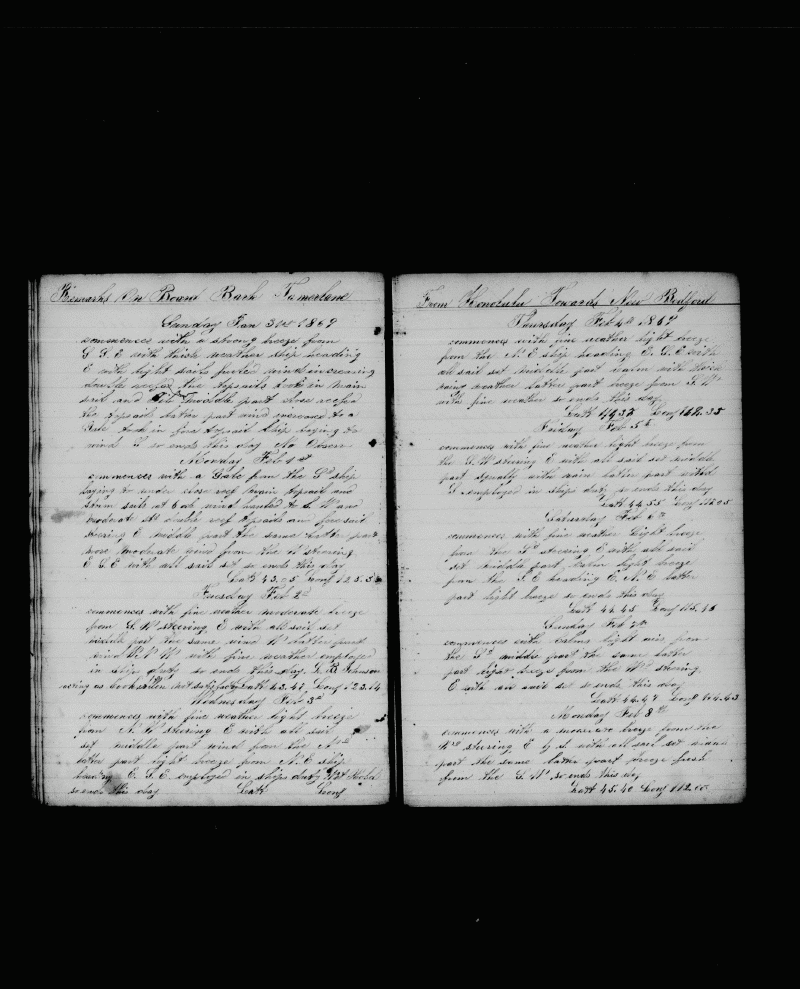 Remarks On Board Bark Tamerlane
Sunday Jan 31st 1869
commences with a strong breeze from
S S E with thick weather ship heading
E with light sails furled wind increasing
double reefed the topsails took in main
sail and middle part close reefed
the topsails latter part wind increased to a
Gale took in fore topsail ship laying to
wind S so ends this day No Obser
Monday Feb 1st
commences with a Gale from the Sd ship
laying to under close reef main topsail and
storm sails at 6 oc wind hauled to S W and
moderate set double reef topsails and foresail
steering E middle part the same latter part
more moderate wind from the steering
E S E with all sail set so ends this day
Latt 43.05 Long 125.5
Tuesday Feb 2d
commences with fine weather moderate breeze
from S W steering E with all sail set
middle part the same wind W latter part
wind W N W with fine weather employed
in ship duty so ends this day L B Johnson
acting as boatsteerer not satisfactory Latt 43.41 Long 123.14
Wednesday Feb 3d
commences with fine weather light breeze
from N W steering E with all sail
set middle part wind from the Nd
latter part light breeze from N E ship
heading E S E employed in ships duty
so ends this day Latt Long
From Honolulu Towards New Bedford
Thursday Feb 4th 1869
commences with fine weather light breeze
from the N E ship heading E S E with
all sail set middle part calm with
weather latter part breeze from S W
with fine weather so ends this day
Latt 44.37 Long 119.35
Friday Feb 5th
commences with fine weather light breeze from
the S W steering E with all sail set middle
part squally with rain latter part wind
S employed in ships duty so ends this day
Latt 44.55 Long
Saturday Feb 6th
commences with fine weather light breeze
from the steering E with all sail
set middle part calm light breeze
from the S E heading E N E latter
part light breeze so ends this day
Latt 44.45 Long 115.45
Sunday Feb 7th
commences with calms light airs from
the Sd middle part the same latter
part light breeze from the Wd steering
E with all sail set so ends this day
Latt 44.47 Long 114.43
Monday Feb 8th
commences with a moderate breeze from the
Wd steering E by S with all sail set middle
part the same latter part breeze fresh
from the S W so ends this day
Latt 45.40 Long 112.00